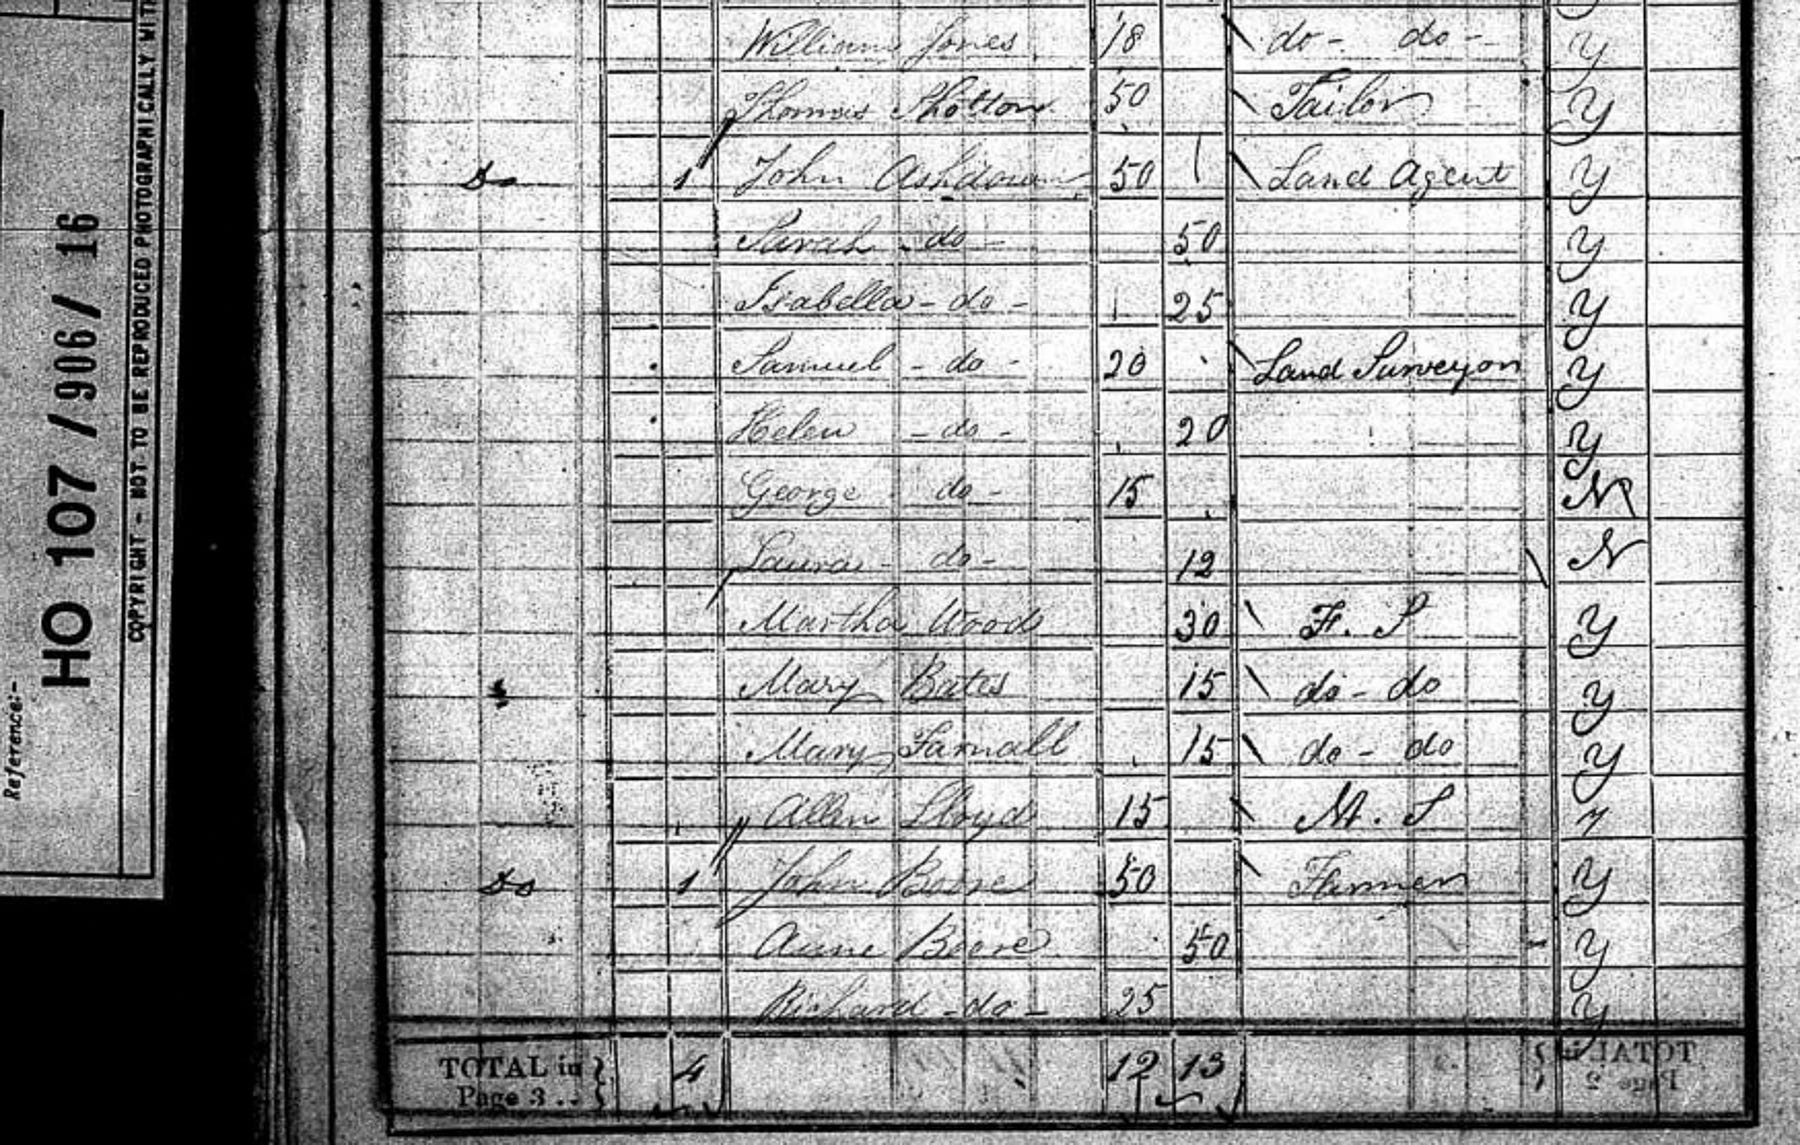 William Jones 18 do - do - Y
Thomas Shotton 50 Tailor Y
Do 1 John Ashdown 50 Land Agent Y
Sarah - do - 50 Y
Isabella - do - 25 Y
Samuel - do - 20 Land Surveyor Y
Helen - do - 20 Y
George - do - 15 N
Laura - do - 12 N
Martha Wood 30 F. S Y
Mary Bates 15 do - do Y
Mary Farnall 15 do - do Y
Allen Lloyd 15 M. S Y
Do 1 John Boore 50 Farmer Y
Anne Boore 50 Y
Richard - do - 25 Y
TOTAL in } 4 12 13
Page 3 ..
TOTAL in }
Page 2
Reference:-
HO 107 / 906 / 16
COPYRIGHT - NOT TO BE REPRODUCED PHOTOGRAPHICALLY